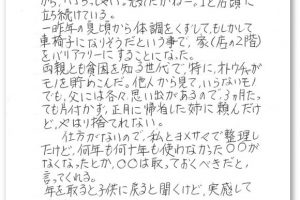 から、いらっしゃい。売れたかねー。」と店頭に
立ち続けている。
一昨年の夏頃から体調をくずして、もしかして
車椅子になりそうだという事で、家(店の2階)
をバリアフリーにすることになった。
両親とも貧困を知る世代で、特に、オトウチャが
モノを貯めこんだ。他人から見て、いらないモノ
でも、父には各々、思い出があるので、3ヶ月たっ
ても片付かず、正月に帰省した姉に頼んだけ
ど、やはり捨てれない。
仕方がないので、私とヨメサンで整理し
たけど、何年も何十年も使わなかった〇〇が
なくなったとか、〇〇は取っておくべきだと、
言ってくれる。
年を取ると子供に戻ると聞くけど、実感して